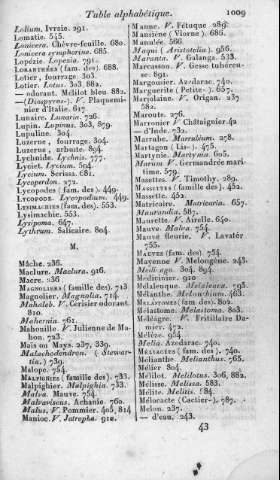 Table alphabétique. 1009
Lolium. Ivraie. 291.
Lomatie. 545.
Lonicera. Chèvre-feuille. 680.
Lonicera symphorina. 685.
Lopézie. Lopesia. 791.
LORANTHÉES (fam. des). 688.
Lotier, fourrage. 303.
Lotier. Lotus. 303, 882.
— odorant. Mélilot bleu. 882.
— (Diospyros). V. Plaqueminier d'Italie. 617
Lunaire. Lunaria. 726.
Lupin. Lupinus. 303, 879.
Lupuline. 304
Luzerne, fourrage. 304.
Luzerne, arbuste. 894.
Lychnide. Lychnis. 777.
Lyciet. Lycium. 504
Lycium. Serissa. 681.
Lycoperdon. 272.
Lycopodes (fam. des). 449.
LYCOPODE. Lycopodium. 449.
LYSIMACHIES (fam. des). 553.
Lysimachie. 553.
Lysipoma. 647.
Lythrum. Salicaire. 804.
M.
Mâche. 236.
Maclure. Maclura. 916.
Macre. 236
MAGNOLIERS (famille des). 713
Magnolier. Magnolia. 714
Mahaleb. V. Cerisier odorant.
810.
Mahernia. 761.
Mahouille. V. Julienne de Mahon. 723.
Maïs ou Mays. 237, 339.
Malachodendron. (Stewartia.) 739.
Malope. 754.
MALPIGHIES (fam. des). 733.
Malpighier. Malpighia. 733.
Malva. Mauve. 754.
Malvaviscus. Achanie. 760.
Malus. V. Pommier. 405, 814
Manioc. V. Jatropha. 912.
Manne. V. Fétuque. 289.
Manulée. 566
Maqui (Aristotelia). 956.
Maranta. V. Galanga. 533.
Marcassou. V. Gesse tubéreuse. 891.
Margousier. Azedarac. 740.
Marguerite (Petite-). 657.
Marjolaine. V. Origan. 237, 582.
Maroute. 276.
Marronier V. Châtaignier 42
— d'Inde. 732.
Marrube. Marrubium. 278.
Martagon (Lis-). 475.
Martynie. Martynia. 605.
Marum. V. Germandrée maritime. 579.
Mazettes. V. Timothy. 289.
MASSETTES (famille des). 452.
Massette. 452.
Matricaire. Matricaria. 657.
Maurandia. 587.
Maurette. V. Airelle. 640.
Mauve. Malva. 754
Mauve fleurie. V. Lavatér
755.
MAUVES (fam. des). 754.
Mayenne. V. Melongène. 243.
Médicinier. 910
Mélanthe. Melanthium. 463.
Melastoma. Melastoma. 803.
Mélèze. 929.
Melia. Azedarac. 740.
Mélianthe. Melianthus. 765.
Mélier. 804.
Mélilot. Melilotus. 306, 882.
Mélisse. Melissa. 583.
Mélite. Melitis. 584.
Mélocacte (Cactier-). 787.
Melon. 237.
— d'eau. 243.
43